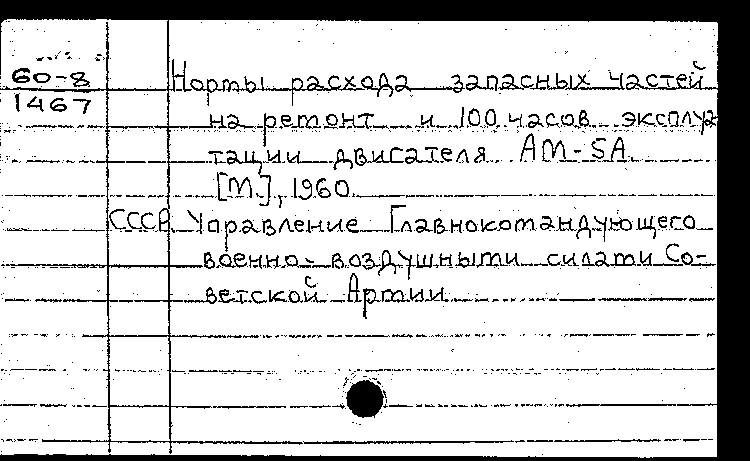 60-8
1467
Нормы расхода запасных частей
на ремонт и 100 часов эксплуа
тации двигателя АМ-5А.
[М.], 1960.
СССР. Управление Главнокомандующего
военно-воздушными силами Со-
ветской Армии.